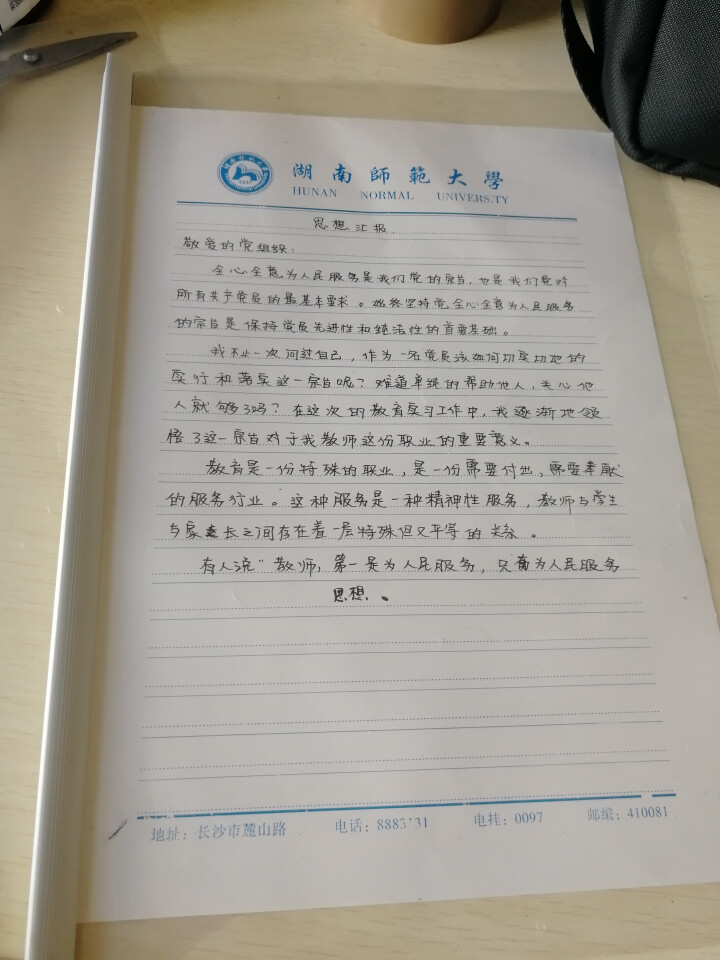 湖南師範大學
HUNAN NORMAL UNIVERS.TY
思想汇报.
敬爱的党组织:
全心全意为人民服务是我们党的宗旨,也是我们党对
所有共产党员的最基本要求。始终坚持党全心全意为人民服务
的宗旨是保持党员先进性和纯洁性的首要基础。
我不止一次问过自己,作为一名党员该如何切实切地的
实行和落实这一宗旨呢?难道单纯的帮助他人,关心他
人就够了吗?在这次的教育实习工作中,我逐渐地领
悟了这一宗旨对于我教师这份职业的重要意义。
教育是一份特殊的职业,是一份需要付出,需要奉献
的服务行业。这种服务是一种精神性服务,教师与学生
与家长之间存在着一层特殊但又平等的关系。
有人说"教师,第一是为人民服务,只有为人民服务
思想。
地址:长沙市麓山路 电话:8883'31 电挂:0097 邮编:410081